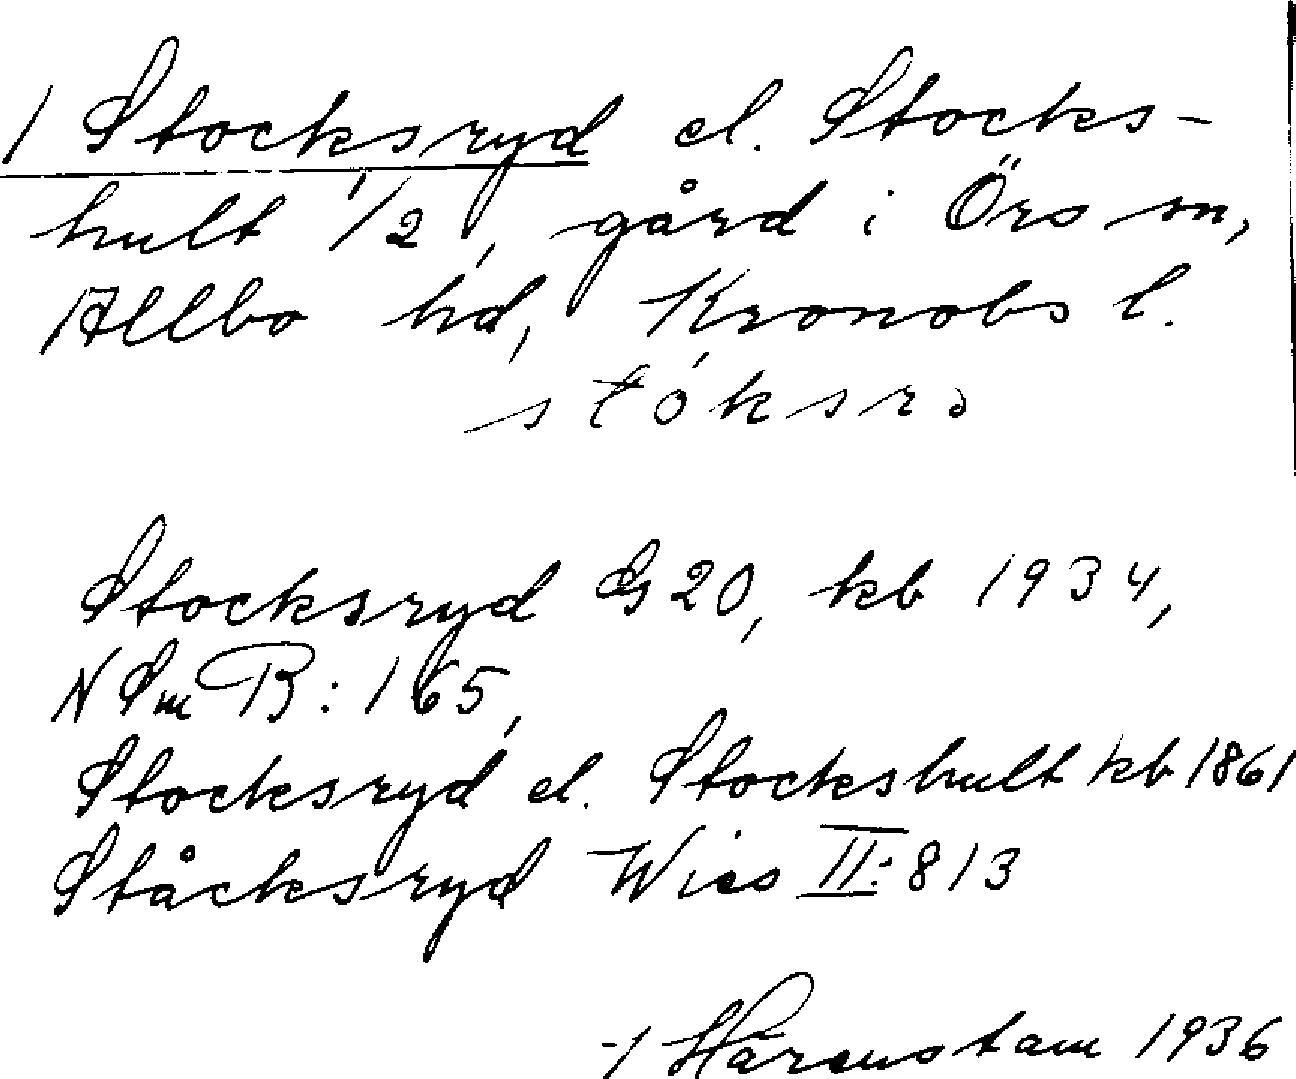 1 Stocksryd el. Stocks-
hult 1/2, gård i Örs sn,
Allbo hd, Kronobs l.
stóksrə
Stocksryd G20, kb 1934,
NSmB:165,
Stocksryd el. Stockshult kb 1861
Ståcksryd Wies II:813
Hårenstam 1936